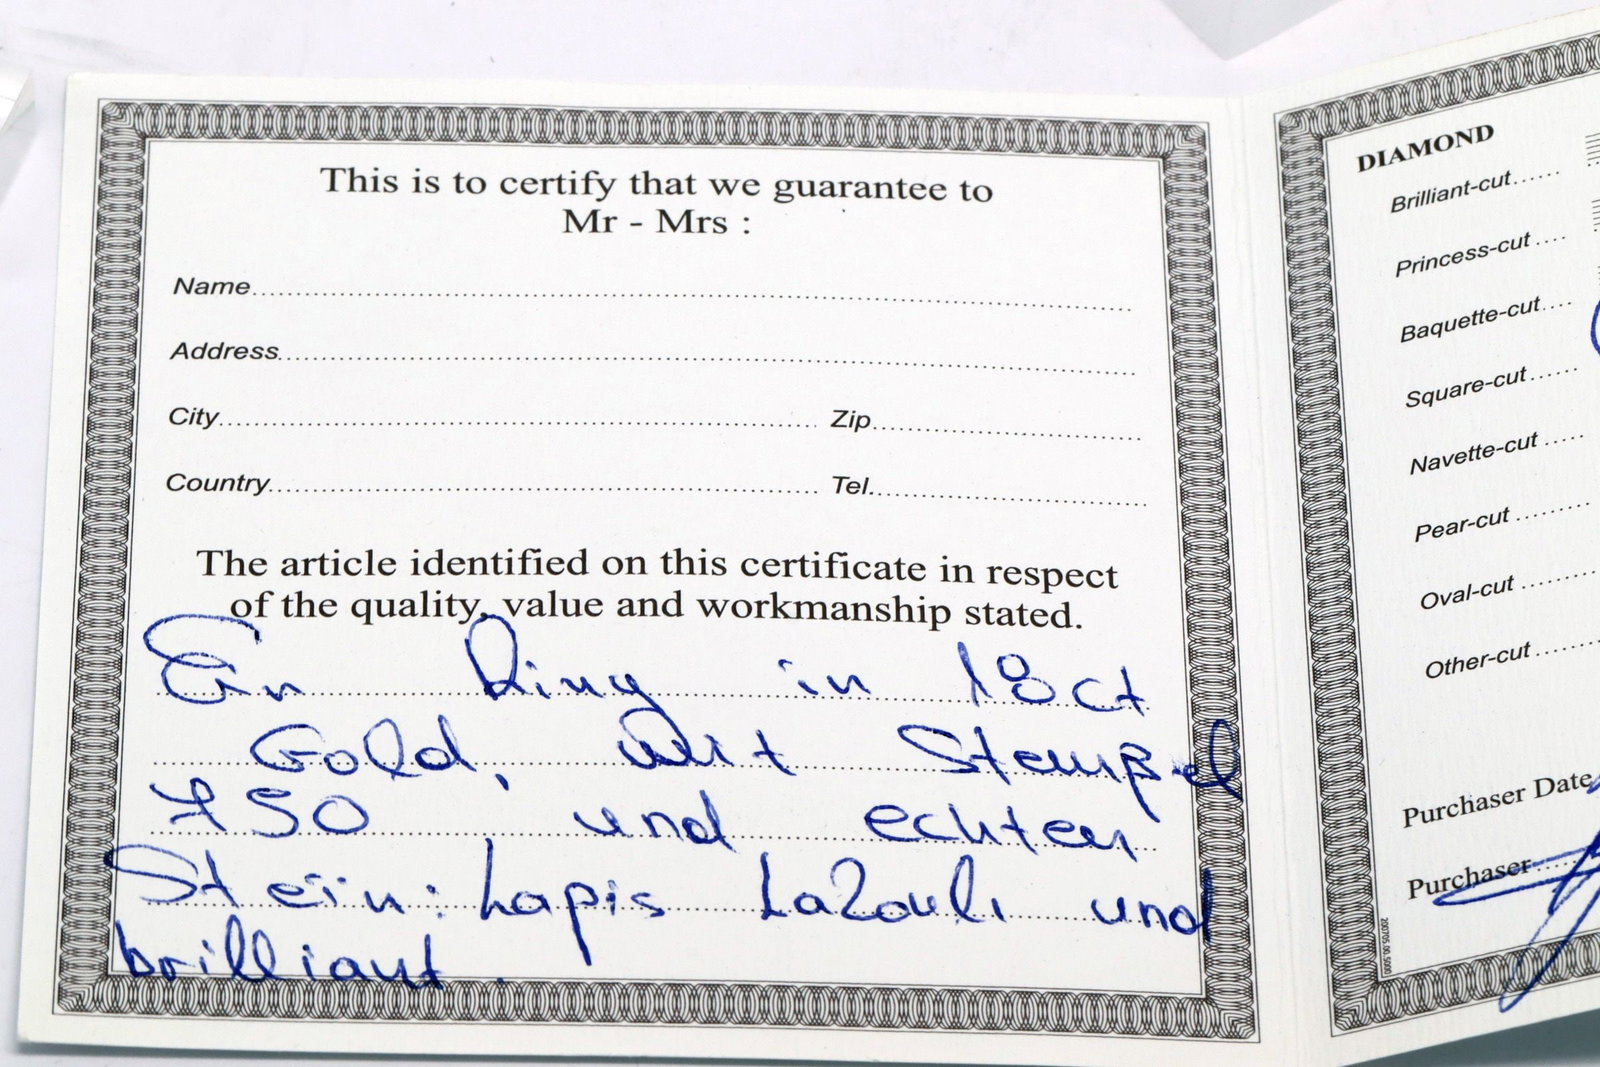 This is to certify that we guarantee to
Mr - Mrs :
Name
Address
City Zip
Country Tel.
The article identified on this certificate in respect
of the quality, value and workmanship stated.
Ein Ring in 18ct
Gold, Mit Stempel
750 und echten
Stein: Lapis Lazouli und
brilliant.
DIAMOND
Brilliant-cut
Princess-cut
Baquette-cut
Square-cut
Navette-cut
Pear-cut
Oval-cut
Other-cut
Purchaser Date
Purchaser